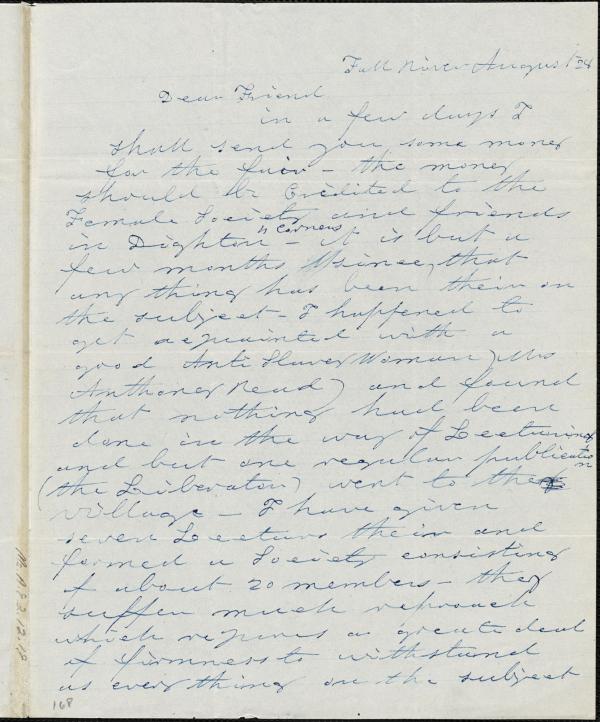 Fall River August 24
Dear Friend
in a few days I
shall send you some money
for the fair - the money
should be Credited to the
Female Society and friends
in Dighton 4 Corners - it is but a
few months since, that
any thing has been their on
the subject - I happened to
get aquainted with a
good Anti Slavery Woman (Mrs
Anthoney Read) and found
that nothing had been
done in the way of Lecturing
and but one regular publication
(the Liberator) went to the
village - I have given
seven Lecturs their and
formed a Society consisting
of about 20 members - they
suffer much reproach
which requires a greate deal
of firmness to withstand
as every thing on the subject
168